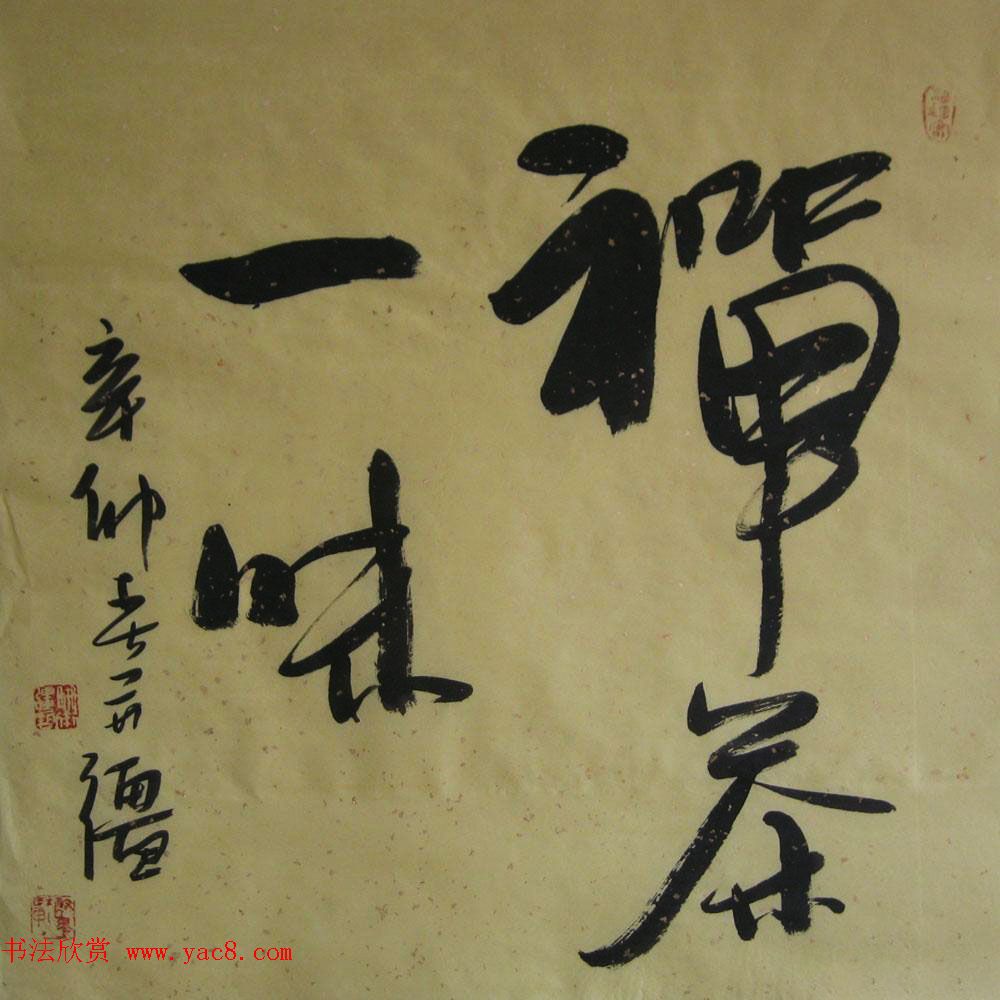 禪茶
一味
辛卯春
书法欣赏 www.yac8.com